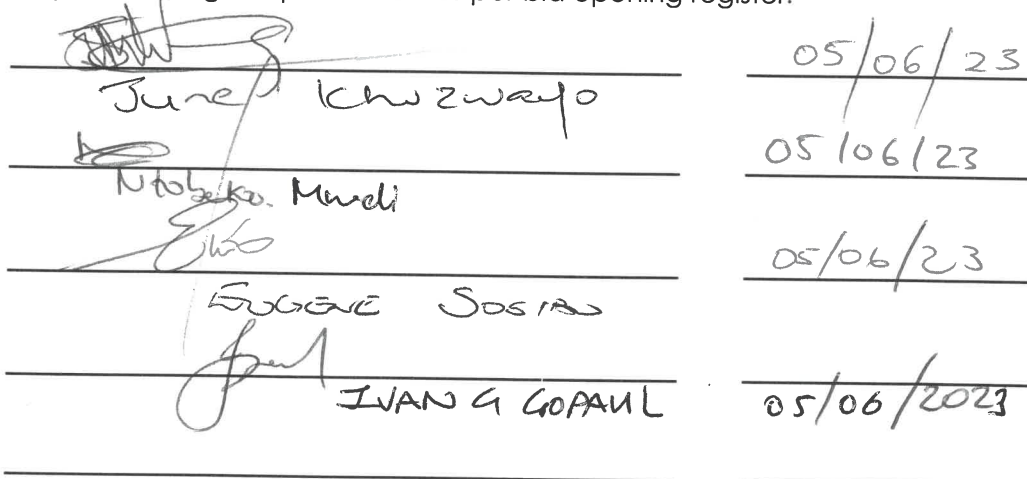 per bid opening register.
05/06/23
June Khuzwayo
05/06/23
Ntobeko
05/06/23
EUGENE SOSIBO
IVAN G GOPAUL 05/06/2023